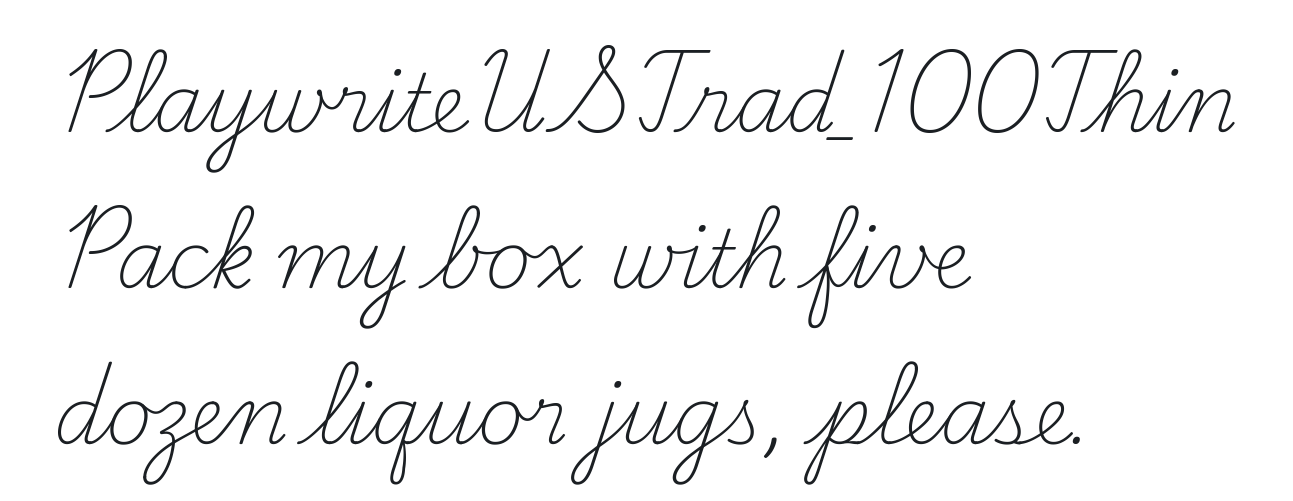 PlaywriteUSTrad_100Thin
Pack my box with five
dozen liquor jugs, please.